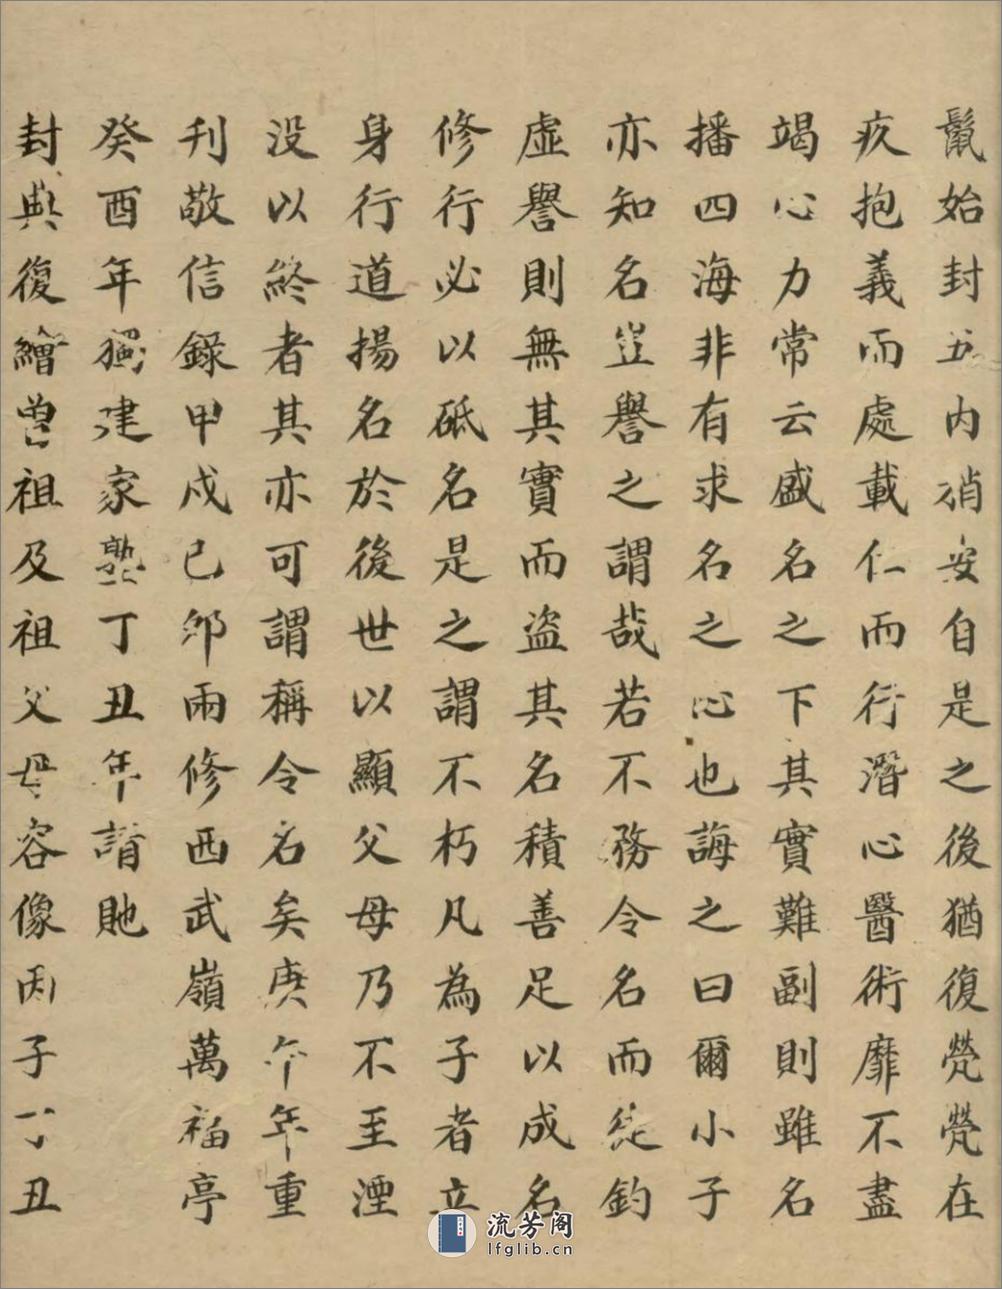 鬣始封五内稍安自是之後猶復煢煢在
疚抱義而處載仁而行潛心醫術靡不盡
竭心力常云盛名之下其實難副則雖名
播四海非有求名之心也誨之曰爾小子
亦知名豈譽之謂哉若不務令名而徒釣
虛譽則無其實而盜其名積善足以成名
修行必以砥名是之謂不朽凡為子者立
身行道揚名於後世以顯父母乃不至湮
没以終者其亦可謂稱令名矣庚午年重
刊敬信錄甲戍已卯兩修西武嶺萬福亭
癸酉年獨建家塾丁丑年請貤
封典復繪曽祖及祖父母容像丙子丁丑
流芳阁
lfglib.cn